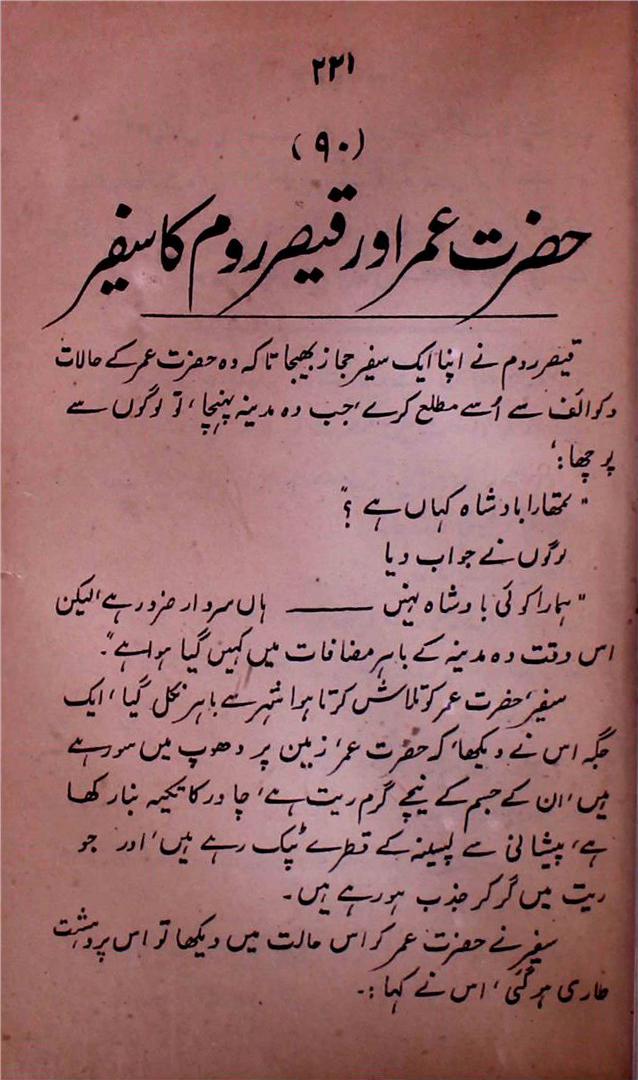 ۲۲۱
(۹۰)
حضرت عمر اور قیصر روم کا سفیر
قیصر روم نے اپنا ایک سفیر حجاز بھیجا تاکہ وہ حضرت عمر کے حالات
و کوائف سے اُسے مطلع کرے، جب وہ مدینہ پہنچا، تو لوگوں سے
پوچھا:
"تمھارا بادشاہ کہاں ہے؟"
لوگوں نے جواب دیا
"ہمارا کوئی بادشاہ نہیں ـــــــ ہاں سردار ضرور ہے، لیکن
اس وقت وہ مدینہ کے باہر مضافات میں کہیں گیا ہوا ہے"۔
سفیر، حضرت عمر کو تلاش کرتا ہوا شہر سے باہر نکل گیا، ایک
جگہ اس نے دیکھا، کہ حضرت عمر، زمین پر دھوپ میں سو رہے
ہیں، ان کے جسم کے نیچے گرم ریت ہے، چادر کا تکیہ بنا رکھا
ہے، پیشانی سے پسینہ کے قطرے ٹپک رہے ہیں، اور جو
ریت میں گر کر جذب ہو رہے ہیں۔
سفیر نے حضرت عمر کو اس حالت میں دیکھا تو اس پر دہشت
طاری ہو گئی، اس نے کہا:۔